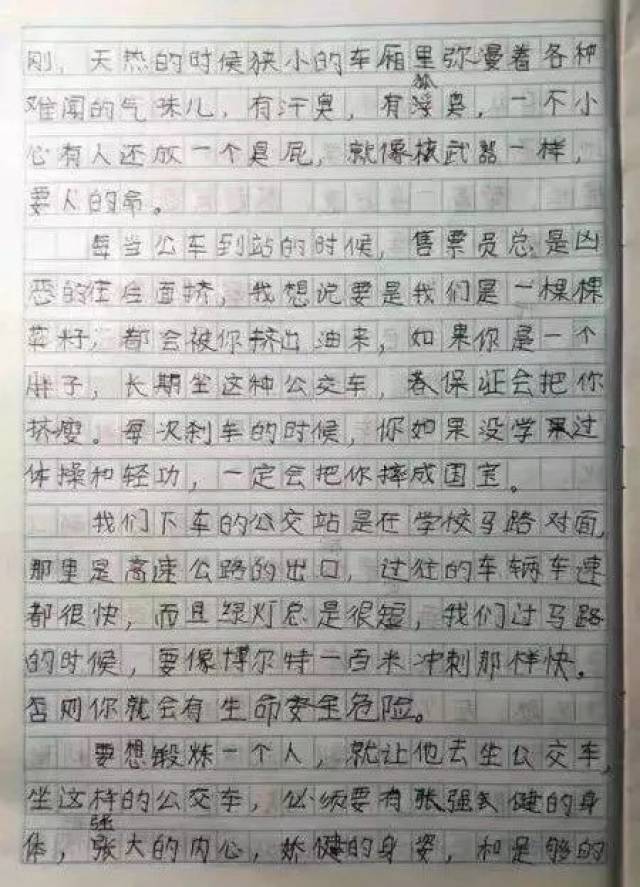 刚，天热的时候狭小的车厢里弥漫着各种
狐
难闻的气味儿，有汗臭，有臭，一不小
心有人还放一个臭屁，就像核武器一样，
要人的命。
每当公车到站的时候，售票员总是凶
恶的往后面挤，我想说要是我们是一棵棵
菜籽，都会被你挤出油来，如果你是一个
胖子，长期坐这种公交车，保证会把你
挤瘦。每次刹车的时候，你如果没学过
体操和轻功，一定会把你摔成国宝。
我们下车的公交站是在学校马路对面，
那里是高速公路的出口，过往的车辆车速
都很快，而且绿灯总是很短，我们过马路
的时候，要像博尔特一百米冲刺那样快。
否则你就会有生命安全危险。
要想锻炼一个人，就让他去坐公交车，
坐这样的公交车，必须要有强健的身
强
体，大的内心，娇健的身姿，和足够的